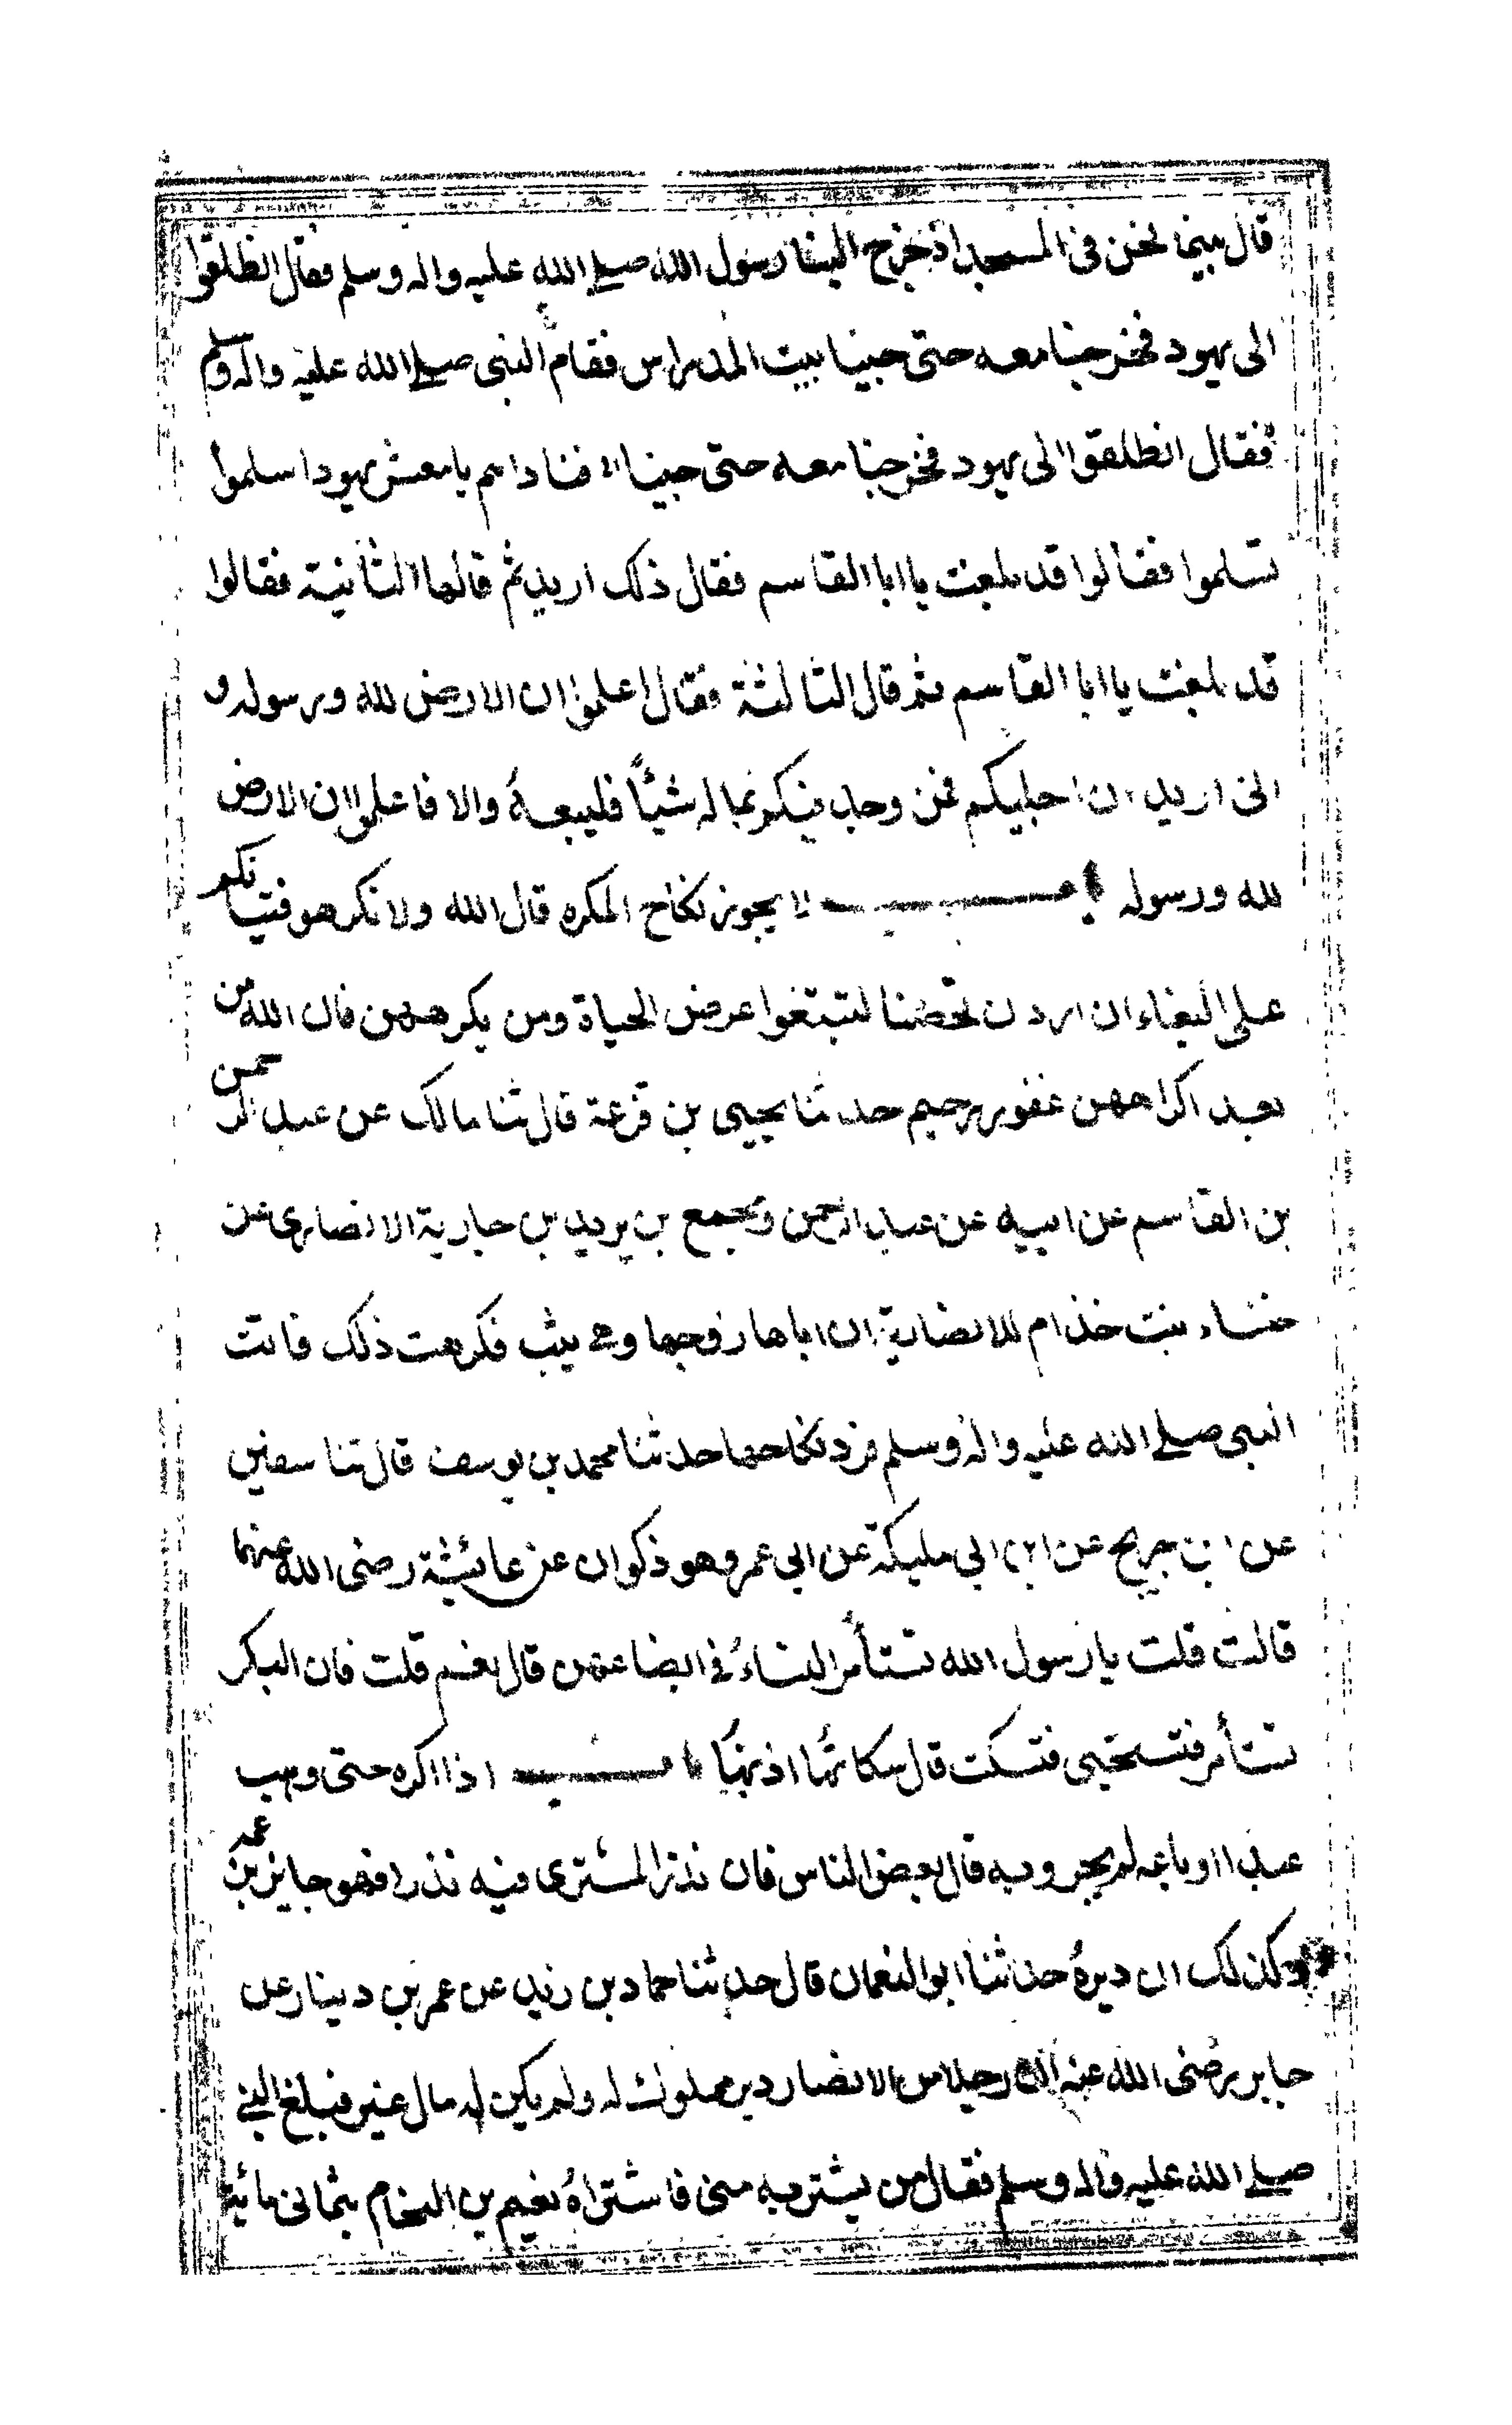 قال بينما نحن فى المسجد اذ خرج الينا رسول الله صلے الله عليه واله وسلم فقال انطلقوا
الى يهود فخرجنا معه حتى جينا بيت المدراس فقام النبى صلے الله عليه واله وسلم
فقال انطلقوا الى يهود فخرجنا معه حتى جينا فناداهم يا معشر يهود اسلموا
تسلموا فقالوا قد بلغت يا ابا القاسم فقال ذلك اريد ثم قالها الثانية فقالوا
قد بلغت يا ابا القاسم ثم قال الثالثة فقال اعلموا ان الارض لله ورسوله و
انى اريد ان اجليكم فمن وجد منكم بماله شيئًا فليبعهُ والا فاعلموا ان الارض
لله ورسوله باب لا يجوز نكاح المكره قال الله ولا تكرهوا فتياتكم
على البغاء ان اردن تحصنا لتبتغوا عرض الحياة ومن يكرههن فان الله من
بعد اكراههن غفور رحيم حدثنا يحيى بن قزعة قال ثنا مالك عن عبد الرحمن
بن القاسم عن ابيه عن عبد الرحمن ومجمع بن يزيد بن جارية الانصارى عن
خنساء بنت خذام الانصارية ان اباها زوجها وهى ثيب فكرهت ذلك فاتت
النبى صلے الله عليه واله وسلم فرد نكاحها حدثنا محمد بن يوسف قال ثنا سفين
عن ابن جريج عن ابن ابي مليكة عن ابي عمرو هو ذكوان عن عائشة رضى الله عنهما
قالت قلت يا رسول الله تستأمر النساءُ فى ابضاعهن قال نعم قلت فان البكر
تستأمر فتستحيى فتسكت قال سكاتُها اذنها باب اذا اكره حتى وهب
عبدا او باعه لم يجز وبه قال بعض الناس فان نذر المشترى فيه نذرا فهو جايز بزعمه
وكذلك ان دبرهُ حدثنا ابو النعمان قال حدثنا حماد بن زيد عن عمر بن دينار عن
جابر رضى الله عنه ان رجلا من الانصار دبر مملوك له ولم يكن له مال غير فبلغ النبى
صلے الله عليه واله وسلم فقال من يشتريه منى فاشتراهُ نعيم بن النحام بثمانى مائة